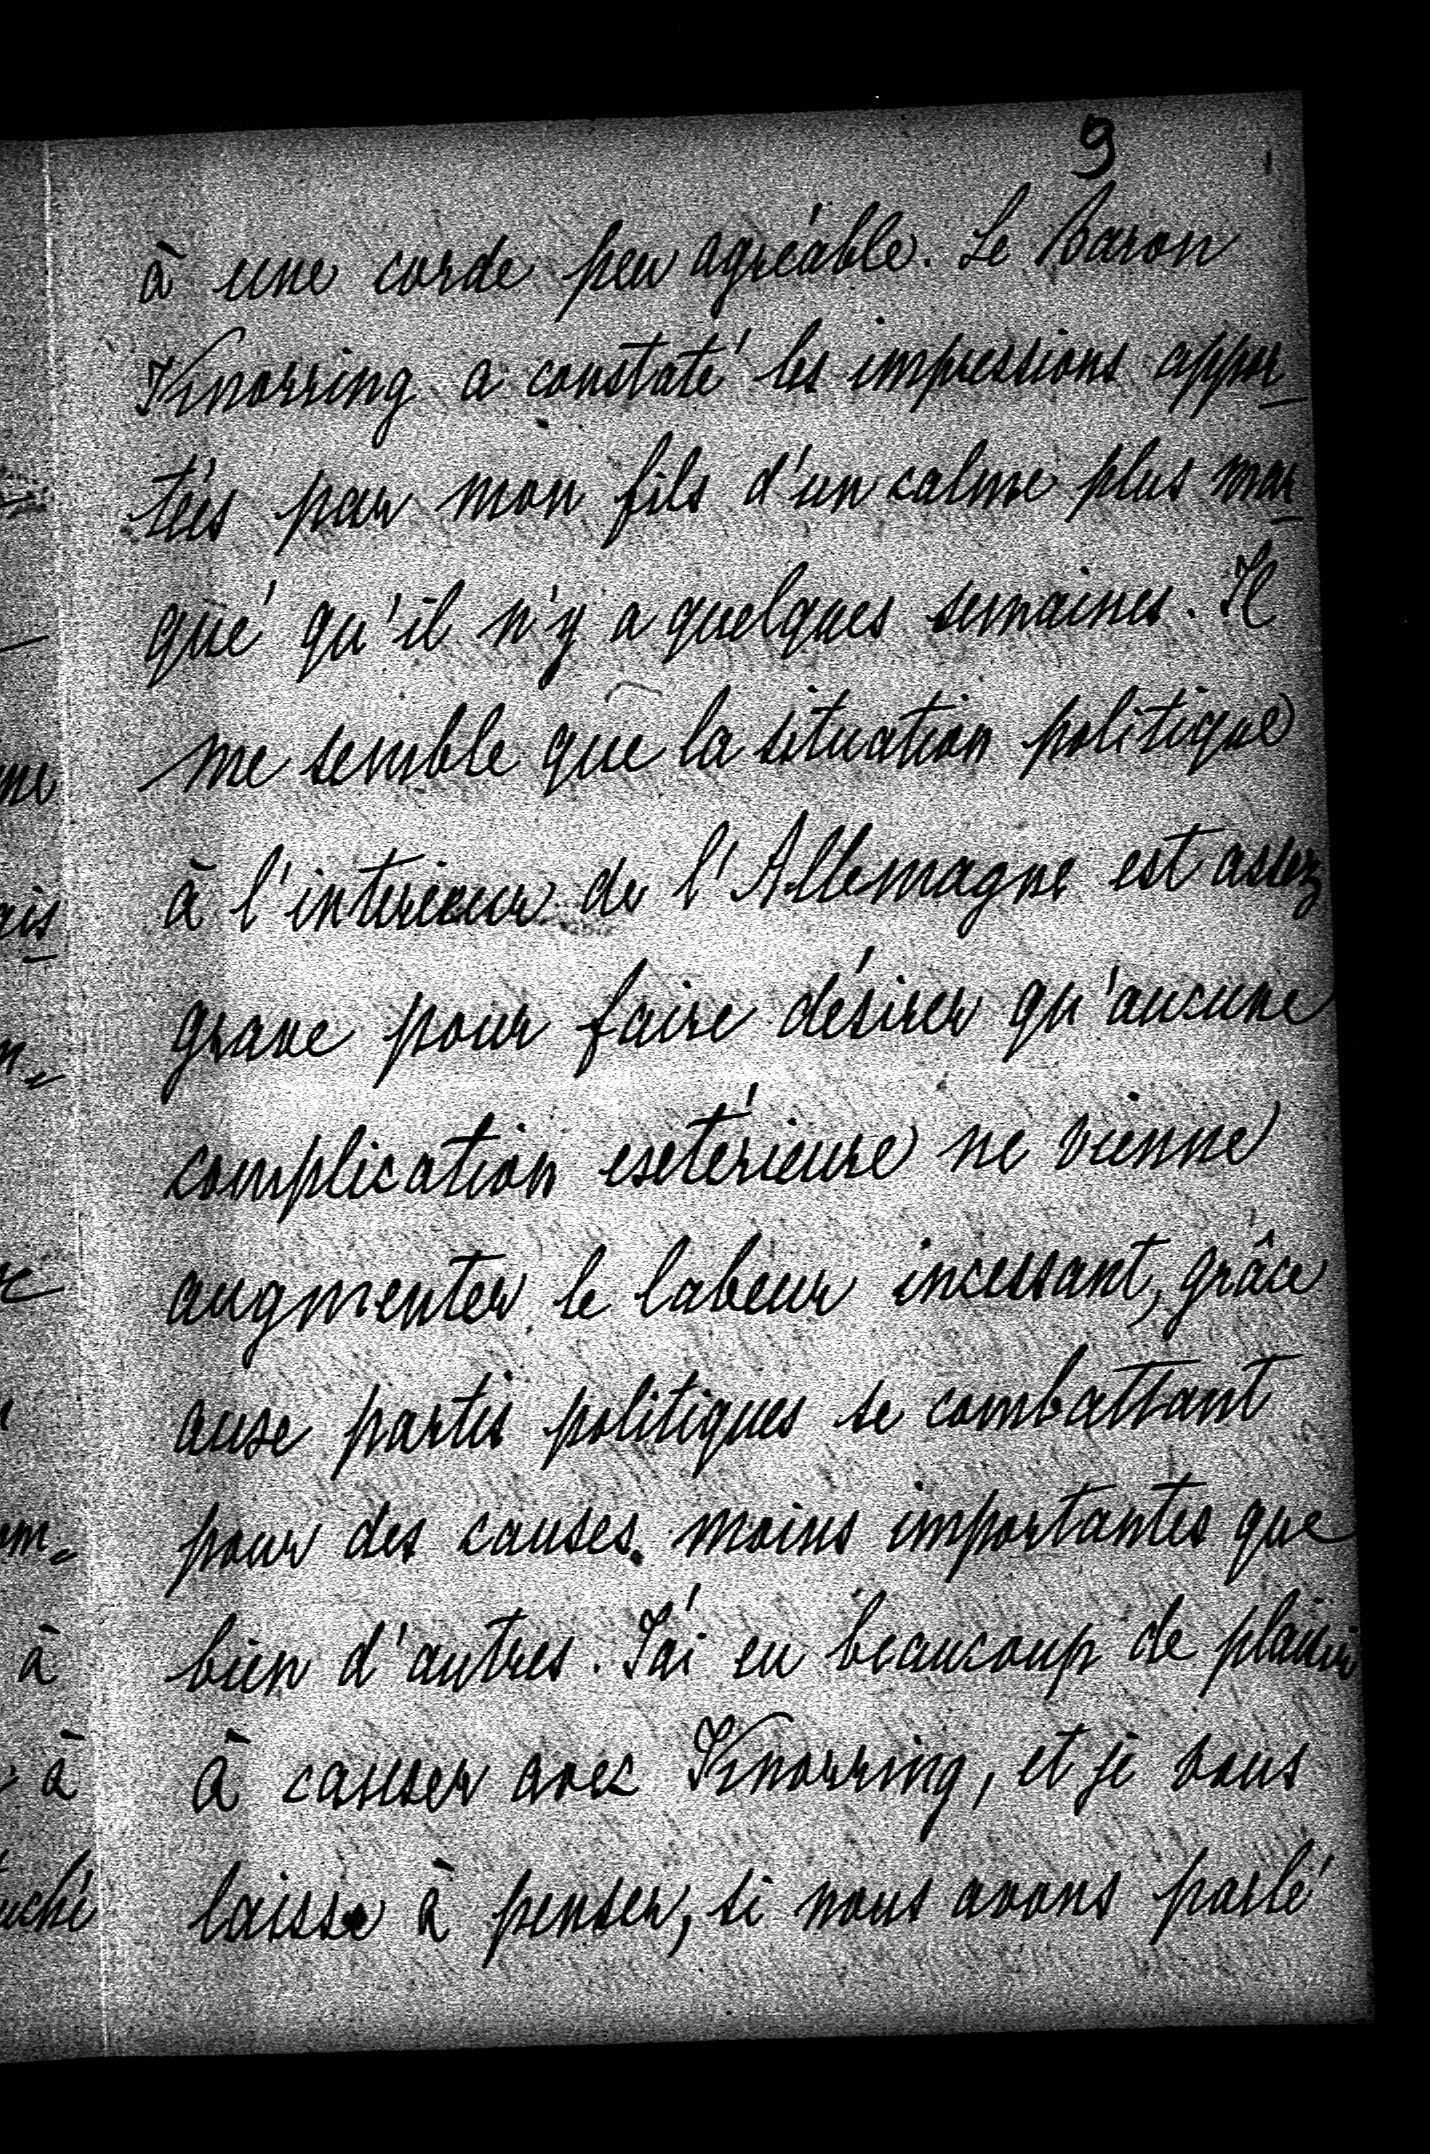 9
à une corde peu agréable. Le Baron
Knorring a constaté les impressions appor-
tées par mon fils d'un calme plus mar-
qué qu'il n'y a quelques semaines. Il
me semble que la situation politique
à l'interieur de l'Allemagne est assez
grave pour faire désirer qu'aucune
complication extérieure ne vienne
augmenter le labeur incessant, grâce
aux partis politiques se combattant
pour des causes moins importantes que
bien d'autres. J'ai eu beaucoup de plaisir
à causer avec Knorring, et je vous
laisse à penser, si nous avons parlé